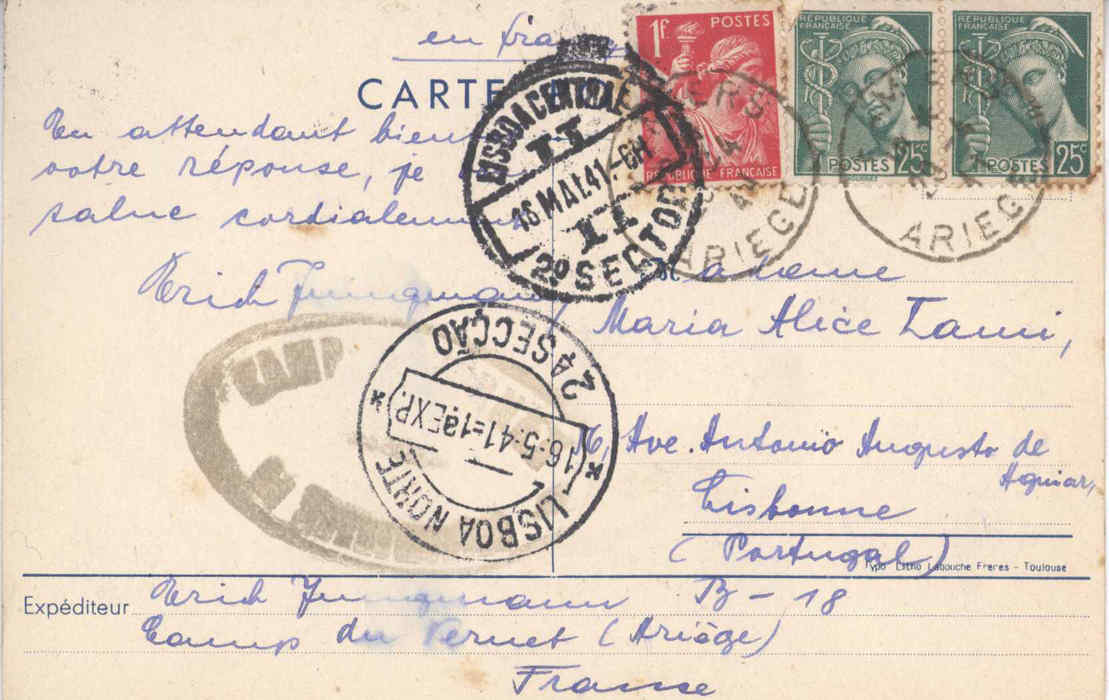 en
CARTE
En attendant bien
votre réponse, je
salue cordialement
Erich Jungmann
1F. POSTES
RÉPUBLIQUE FRANÇAISE
RÉPUBLIQUE FRANÇAISE
POSTES 25c
RÉPUBLIQUE FRANÇAISE
POSTES 25c
ARIEGE
ARIEGE
LISBOA CENTRAL
16 MAI.41.-6H
2º SECTOR
2ª SECÇÃO
16·5·41=1ªEXP.
LISBOA NORTE
CAMP
Madame
Maria Alice Lami,
Ave. Antonio Augusto de
Aguiar,
Lisbonne
(Portugal)
Typo Litho Labouche Freres - Toulouse
Expéditeur Erich Jungmann B-18
Camp du Vernet (Ariège)
France